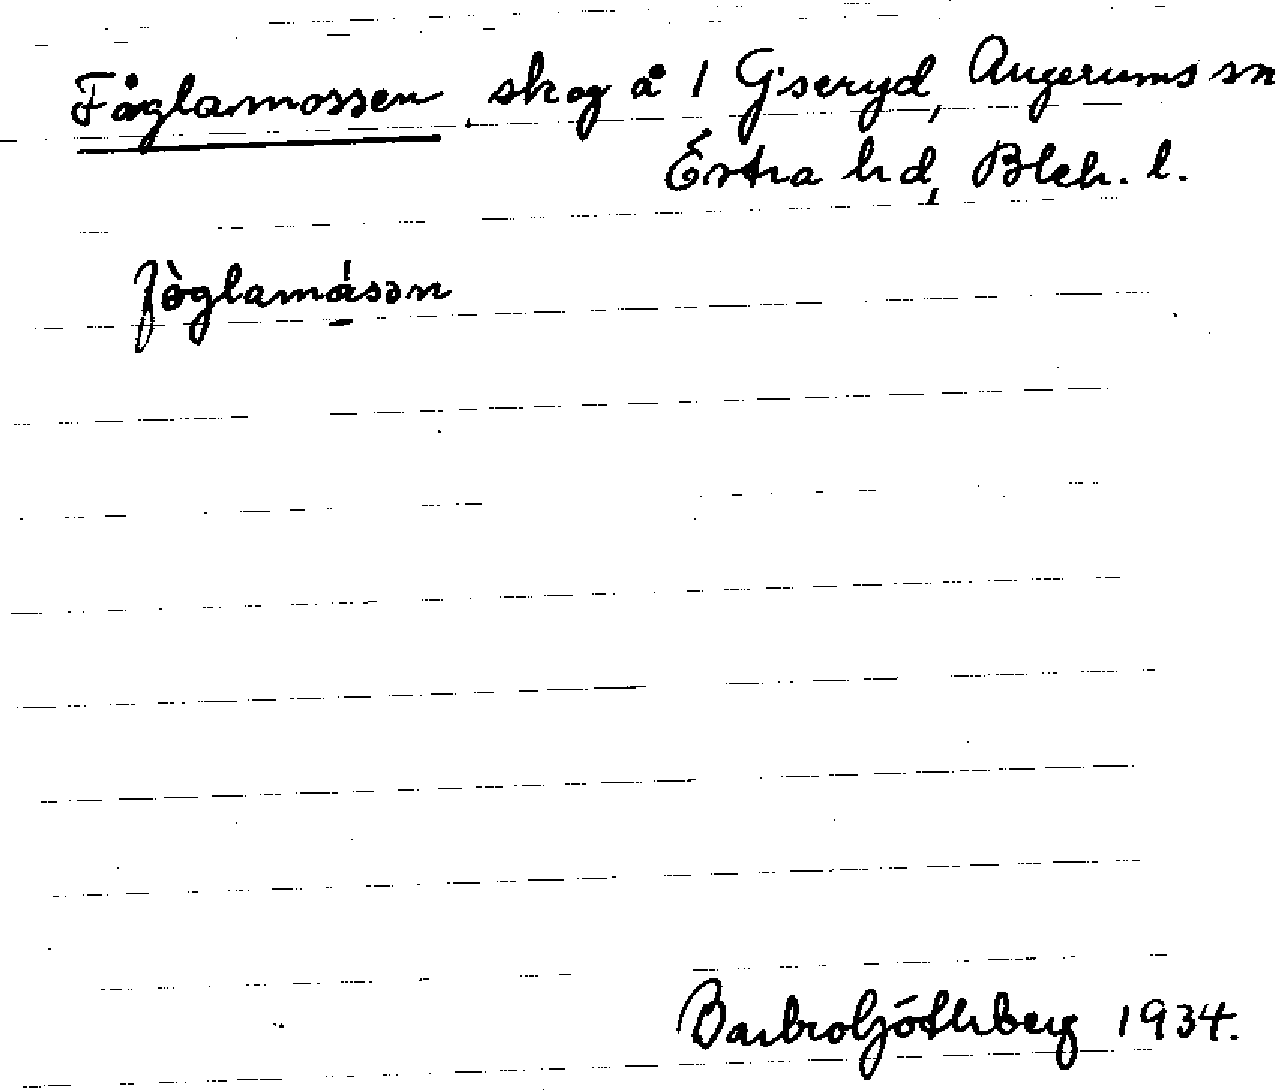 Fåglamossen, skog å 1 Giseryd, Augerums sn
Östra hd, Blek. l.
fòglamásən
Barbro Göthberg 1934.